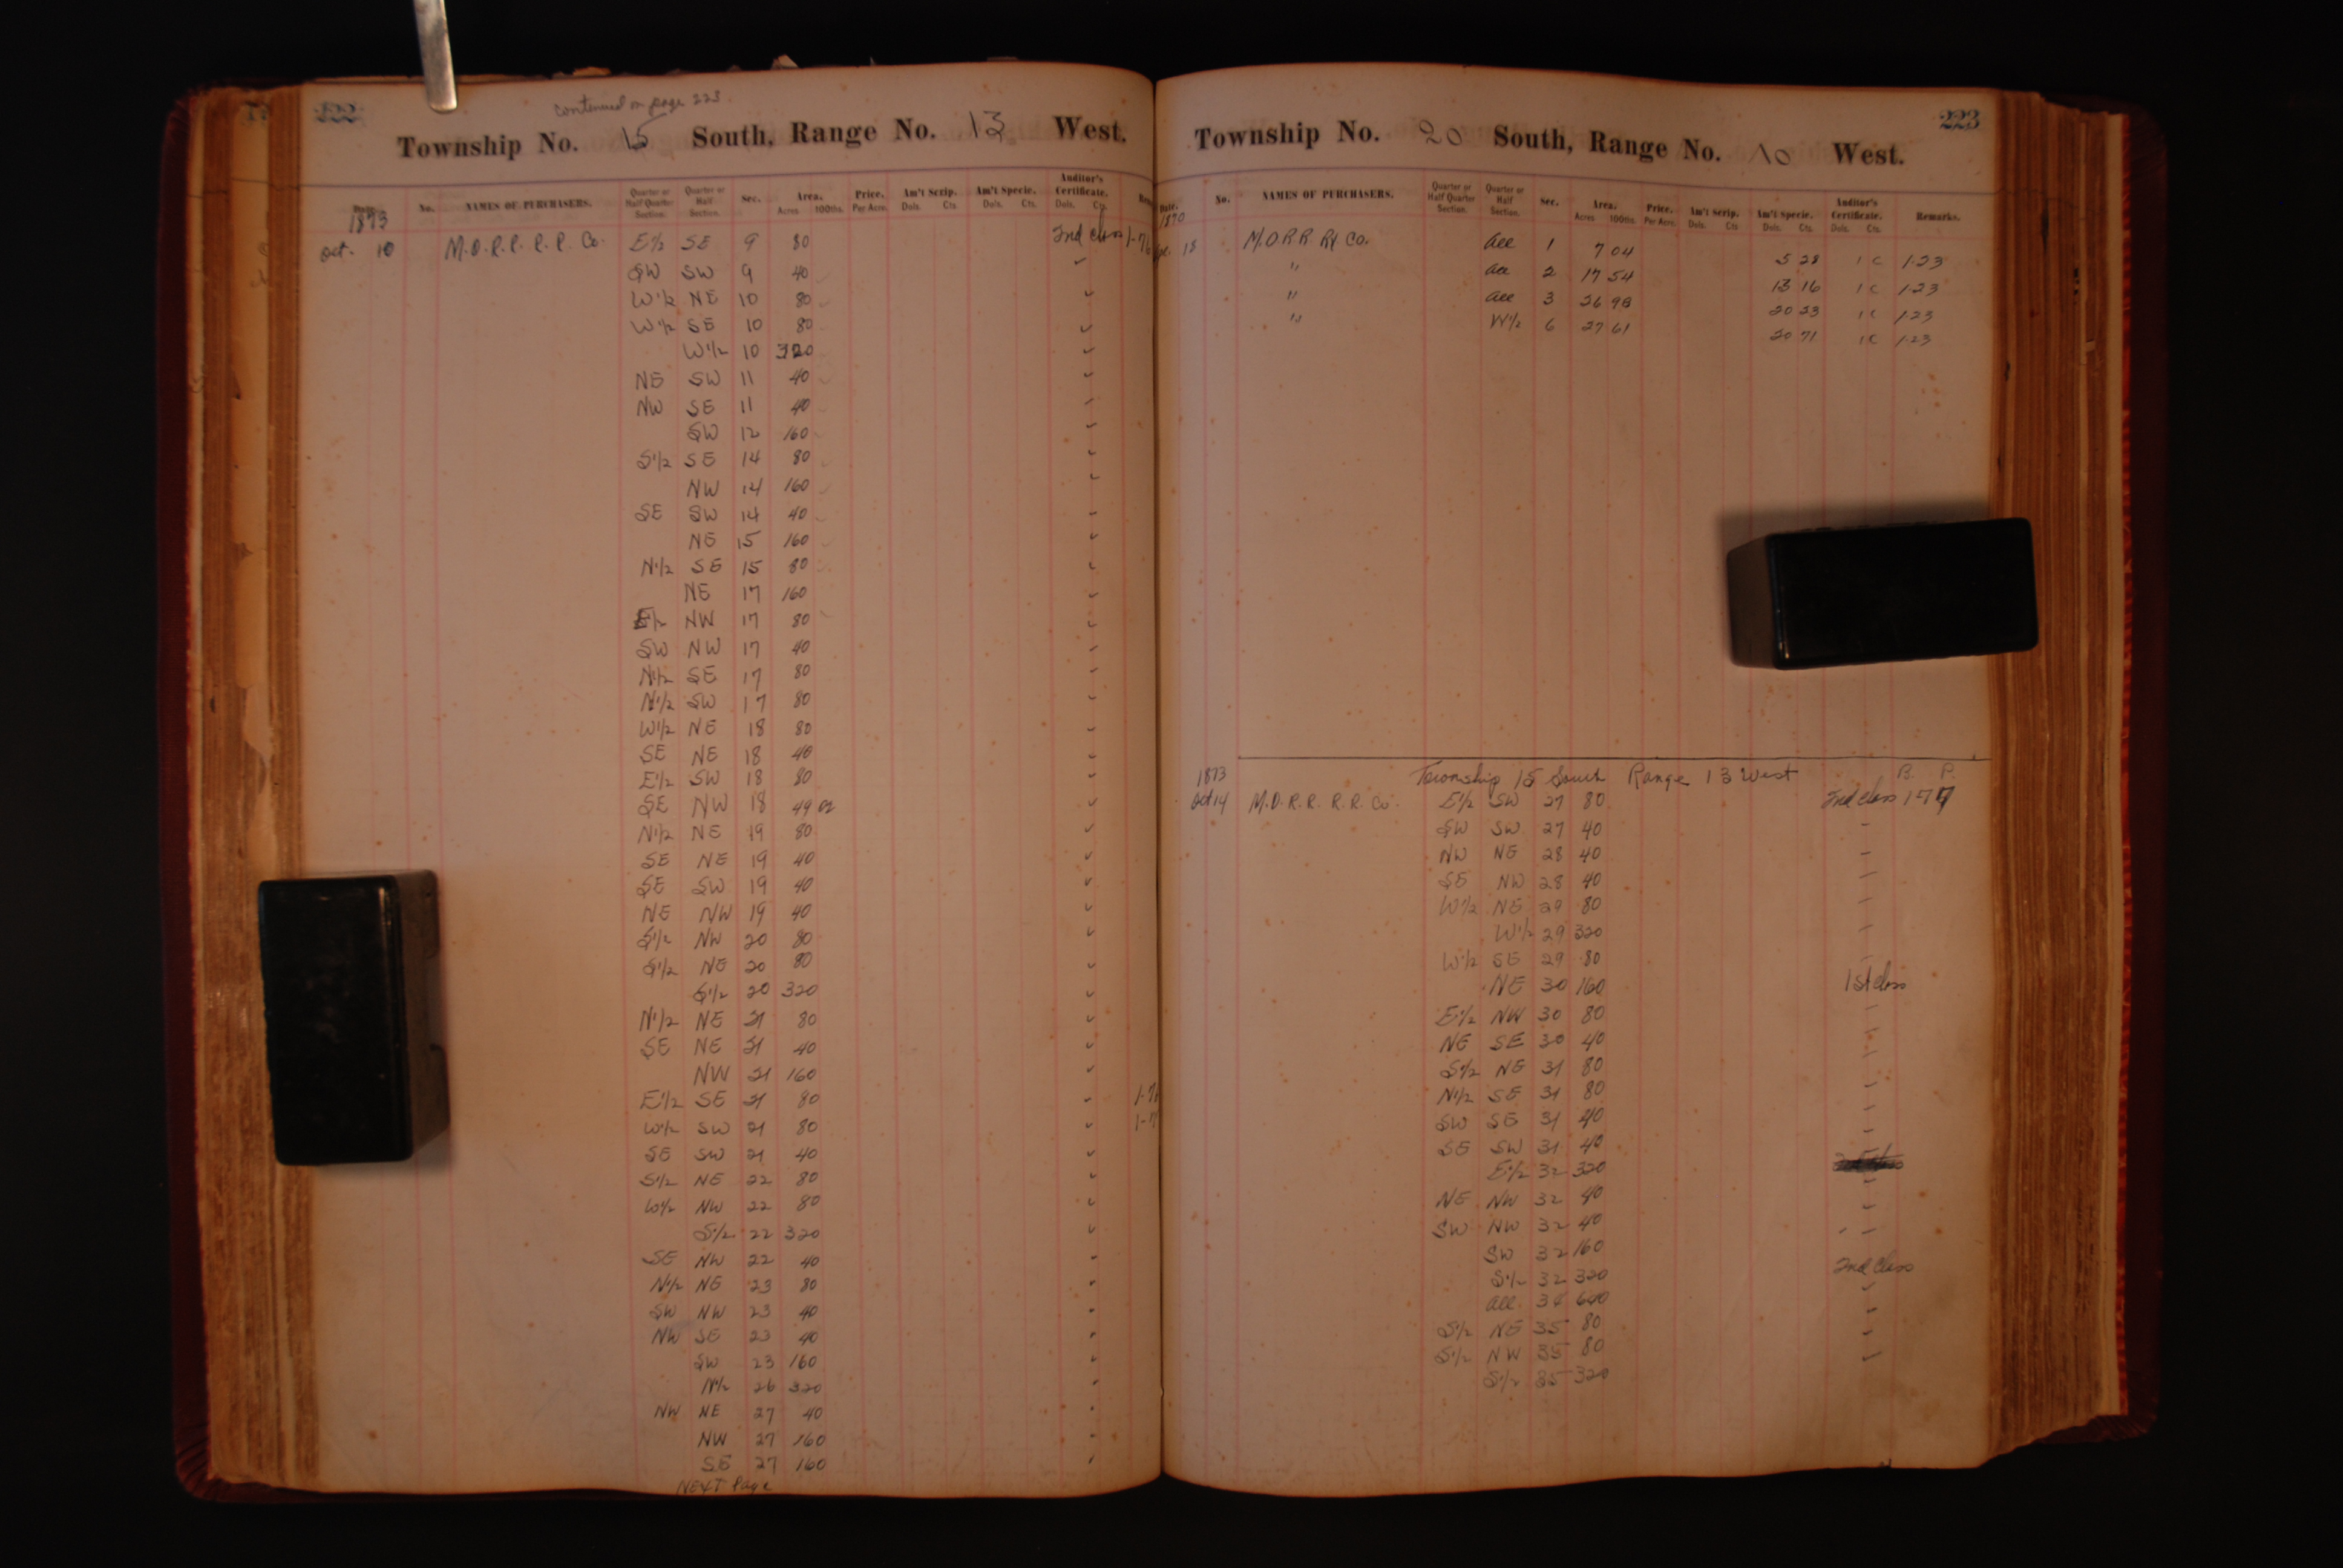 222
continued on page 223
Township No. 15 South, Range No. 13 West.
Date. No. NAMES OF PURCHASERS. Quarter or Half Quarter Section. Quarter or Half Section. Sec. Area. Acres 100ths. Price. Per Acre. Am't Scrip. Dols. Cts Am't Specie. Dols. Cts. Auditor's Certificate. Dols. Cts.
1873
Oct. 10 M.O.R.R. R.R. Co. E½ SE 9 80 2nd class
SW SW 9 40
W½ NE 10 80
W½ SE 10 80
W½ 10 320
NE SW 11 40
NW SE 11 40
SW 12 160
S½ SE 14 80
NW 14 160
SE SW 14 40
NE 15 160
N½ SE 15 80
NE 17 160
E½ NW 17 80
SW NW 17 40
N½ SE 17 80
N½ SW 17 80
W½ NE 18 80
SE NE 18 40
E½ SW 18 80
SE NW 18 49 02
N½ NE 19 80
SE NE 19 40
SE SW 19 40
NE NW 19 40
S½ NW 20 80
S½ NE 20 80
S½ 20 320
N½ NE 21 80
SE NE 21 40
NW 21 160
E½ SE 21 80
W½ SW 21 80
SE SW 21 40
S½ NE 22 80
W½ NW 22 80
S½ 22 320
SE NW 22 40
N½ NE 23 80
SW NW 23 40
NW SE 23 40
SW 23 160
N½ 26 320
NW NE 27 40
NW 27 160
SE 27 160
NEXT Page
223
Township No. 20 South, Range No. 10 West.
Date. No. NAMES OF PURCHASERS. Quarter or Half Quarter Section. Quarter or Half Section. Sec. Area. Acres 100ths. Price. Per Acre. Am't Scrip. Dols. Cts Am't Specie. Dols. Cts. Auditor's Certificate. Dols. Cts. Remarks.
1870
18 M.O.R.R. Rd Co. All 1 7 04 5 28 1 C 1-23
" All 2 17 54 13 16 1 C 1-23
" All 3 26 98 20 23 1 C 1-23
" W½ 6 27 61 20 71 1 C 1-23
1873 Township 15 South Range 13 West B. P.
Oct 14 M.O.R.R. R.R. Co. E½ SW 27 80 2nd class 177
SW SW 27 40
NW NE 28 40
SE NW 28 40
W½ NE 29 80
W½ 29 320
W½ SE 29 80
NE 30 160 1st class
E½ NW 30 80
NE SE 30 40
S½ NE 31 80
N½ SE 31 80
SW SE 31 40
SE SW 31 40
E½ 32 320
NE NW 32 40
SW NW 32 40
SW 32 160
S½ 32 320 2nd class
all 34 640
S½ NE 35 80
S½ NW 35 80
S½ 35 320